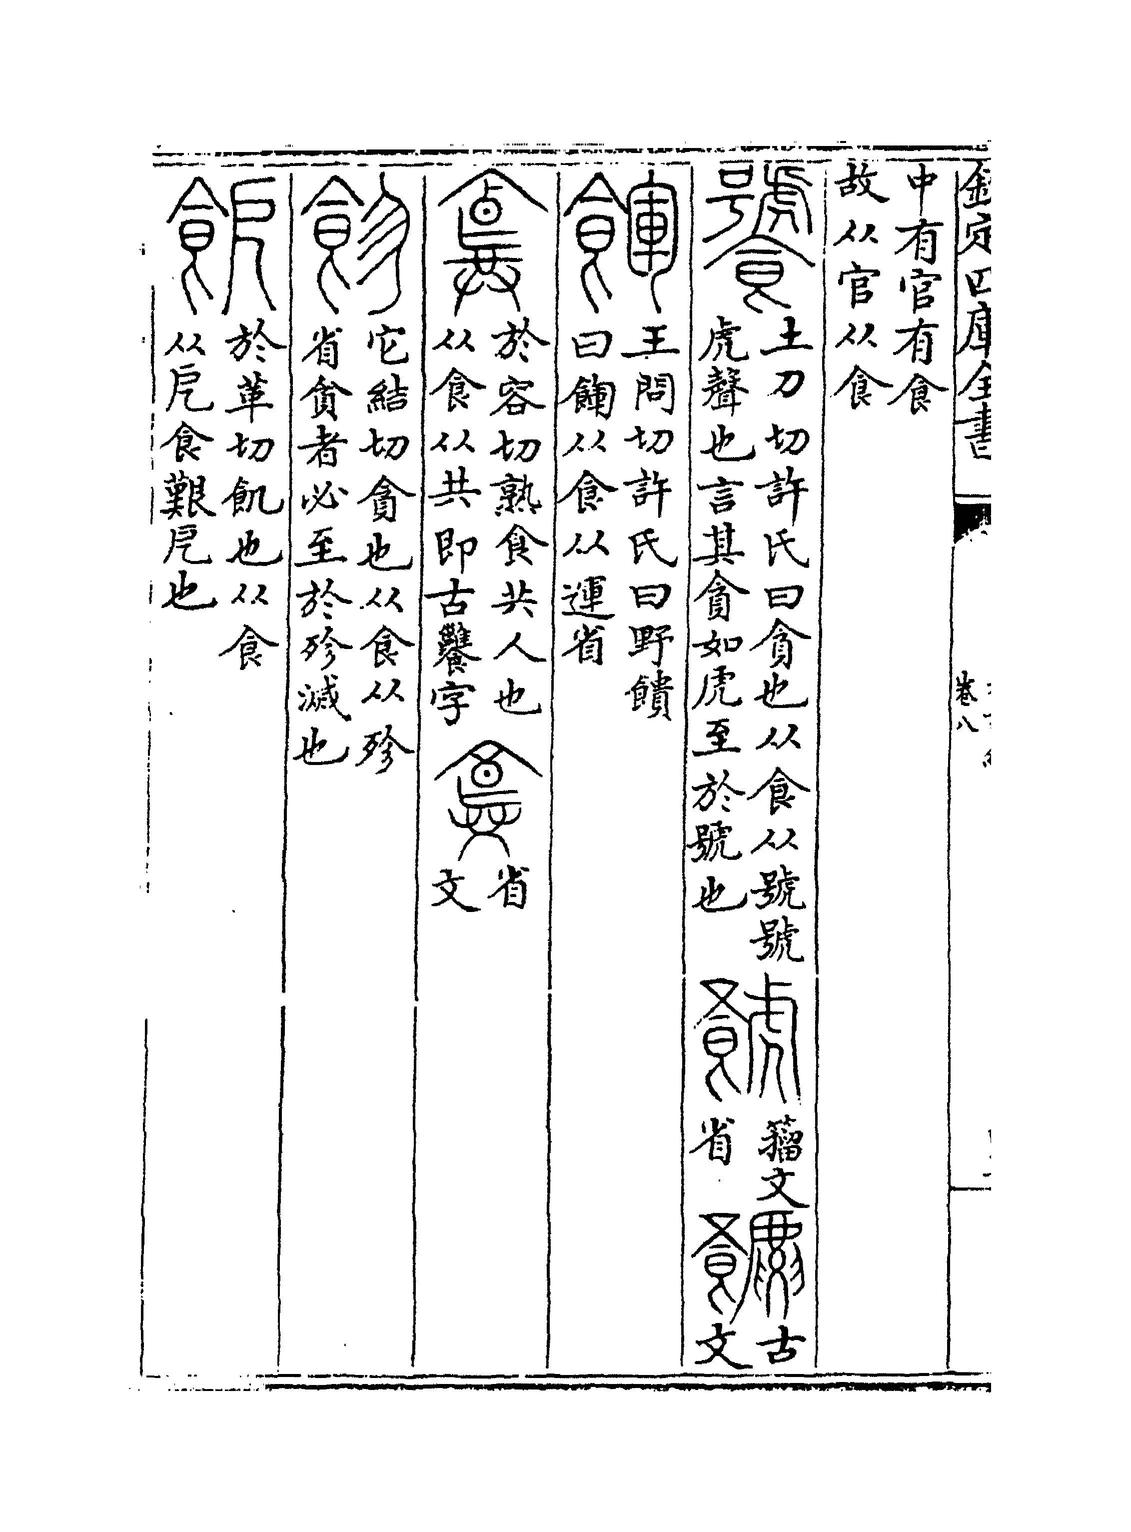 欽定四庫全書
卷八
中有官有食
故从官从食
饕
土刀切許氏曰貪也从食从號號
虎聲也言其貪如虎至於號也
籀文
省
古
文
餫
王問切許氏曰野饋
曰餉从食从運省
於容切熟食共人也
从食从共即古饔字
省
文
飻
它結切貪也从食从殄
省貪者必至於殄滅也
䬵
於革切飢也从食
从戹食艱戹也